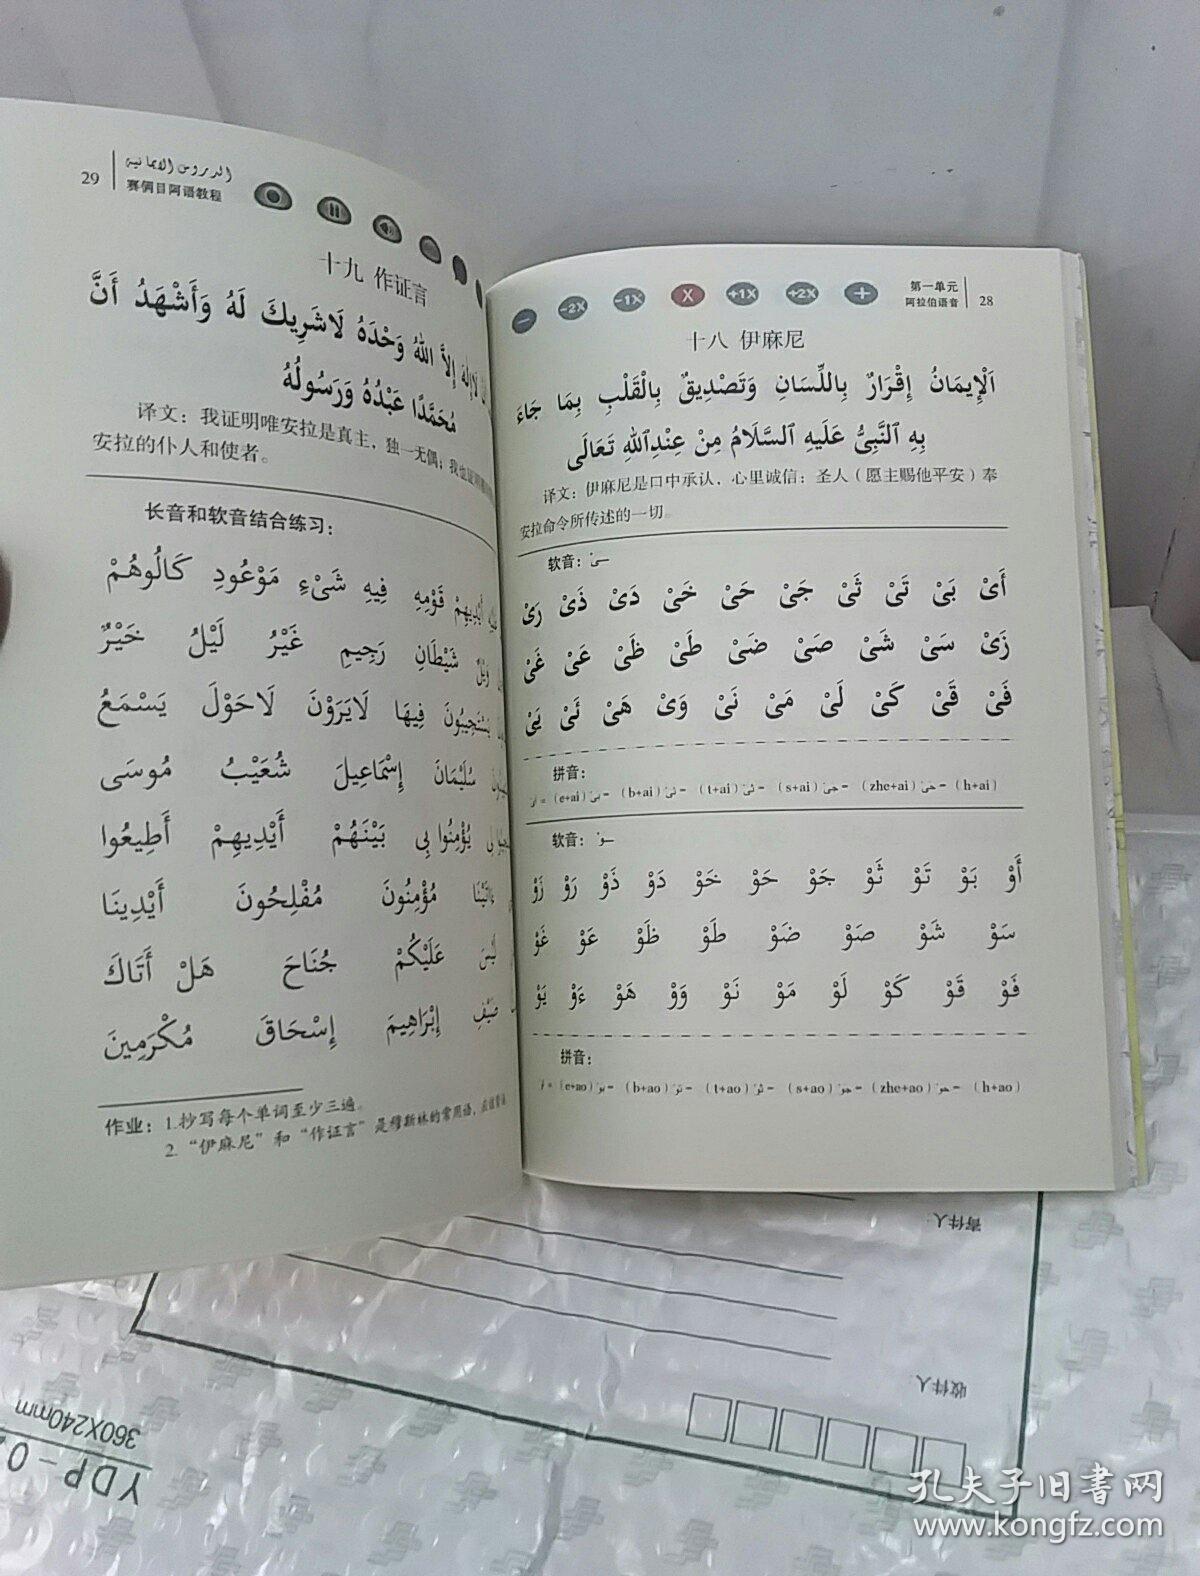 第一单元
阿拉伯语音
28
−
−2X
−1X
X
+1X
+2X
+
十八 伊麻尼
اَلْإِيمَانُ إِقْرَارٌ بِاللِّسَانِ وَتَصْدِيقٌ بِالْقَلْبِ بِمَا جَاءَ
بِهِ ٱلنَّبِيُّ عَلَيهِ ٱلسَّلَامُ مِنْ عِنْدِٱللهِ تَعَالَى
译文：伊麻尼是口中承认，心里诚信：圣人（愿主赐他平安）奉
安拉命令所传述的一切。
软音：ـَـىْ
أَىْ بَىْ تَىْ ثَىْ جَىْ حَىْ خَىْ دَىْ ذَىْ رَىْ
زَىْ سَىْ شَىْ صَىْ ضَىْ طَىْ ظَىْ عَىْ غَىْ
فَىْ قَىْ كَىْ لَىْ مَىْ نَىْ وَىْ هَىْ ئَىْ يَىْ
拼音：
اَىْ = (e+ai) بَىْ = (b+ai) تَىْ = (t+ai) ثَىْ = (s+ai) جَىْ = (zhe+ai) حَىْ = (h+ai)
软音：ـَـوْ
أَوْ بَوْ تَوْ ثَوْ جَوْ حَوْ خَوْ دَوْ ذَوْ رَوْ زَوْ
سَوْ شَوْ صَوْ ضَوْ طَوْ ظَوْ عَوْ غَوْ
فَوْ قَوْ كَوْ لَوْ مَوْ نَوْ وَوْ هَوْ ءَوْ يَوْ
拼音：
اَوْ = (e+ao) بَوْ = (b+ao) تَوْ = (t+ao) ثَوْ = (s+ao) جَوْ = (zhe+ao) حَوْ = (h+ao)
29
الدروس الايمانية
赛俩目阿语教程
十九 作证言
لَاإِلٰهَ إِلاَّ اللهُ وَحْدَهُ لَاشَرِيكَ لَهُ وَأَشْهَدُ أَنَّ
مُحَمَّدًا عَبْدُهُ وَرَسُولُهُ
译文：我证明唯安拉是真主，独一无偶；我也证明
安拉的仆人和使者。
长音和软音结合练习：
أَيْدِيهِمْ قَوْمِهِ فِيهِ شَىْءٍ مَوْعُودِ كَالُوهُمْ
وَيْلٌ شَيْطَانِ رَجِيمِ غَيْرُ لَيْلُ خَيْرٌ
يَسْتَجِيبُونَ فِيهَا لَايَرَوْنَ لَاحَوْلَ يَسْمَعُ
سُلَيْمَانَ إِسْمَاعِيلَ شُعَيْبُ مُوسَى
لِى يُؤْمِنُوا بِى بَيْنَهُمْ أَيْدِيهِمْ أَطِيعُوا
مُؤْمِنُونَ مُفْلِحُونَ أَيْدِينَا
لَيْسَ عَلَيْكُمْ جُنَاحَ هَلْ أَتَاكَ
ضَيْفِ إِبْرَاهِيمَ إِسْحَاقَ مُكْرَمِينَ
作业：1.抄写每个单词至少三遍。
2.“伊麻尼”和“作证言”是穆斯林的常用语，应该
寄件人：
收件人：
YDP-0
360X240mm
孔夫子旧书网
www.kongfz.com